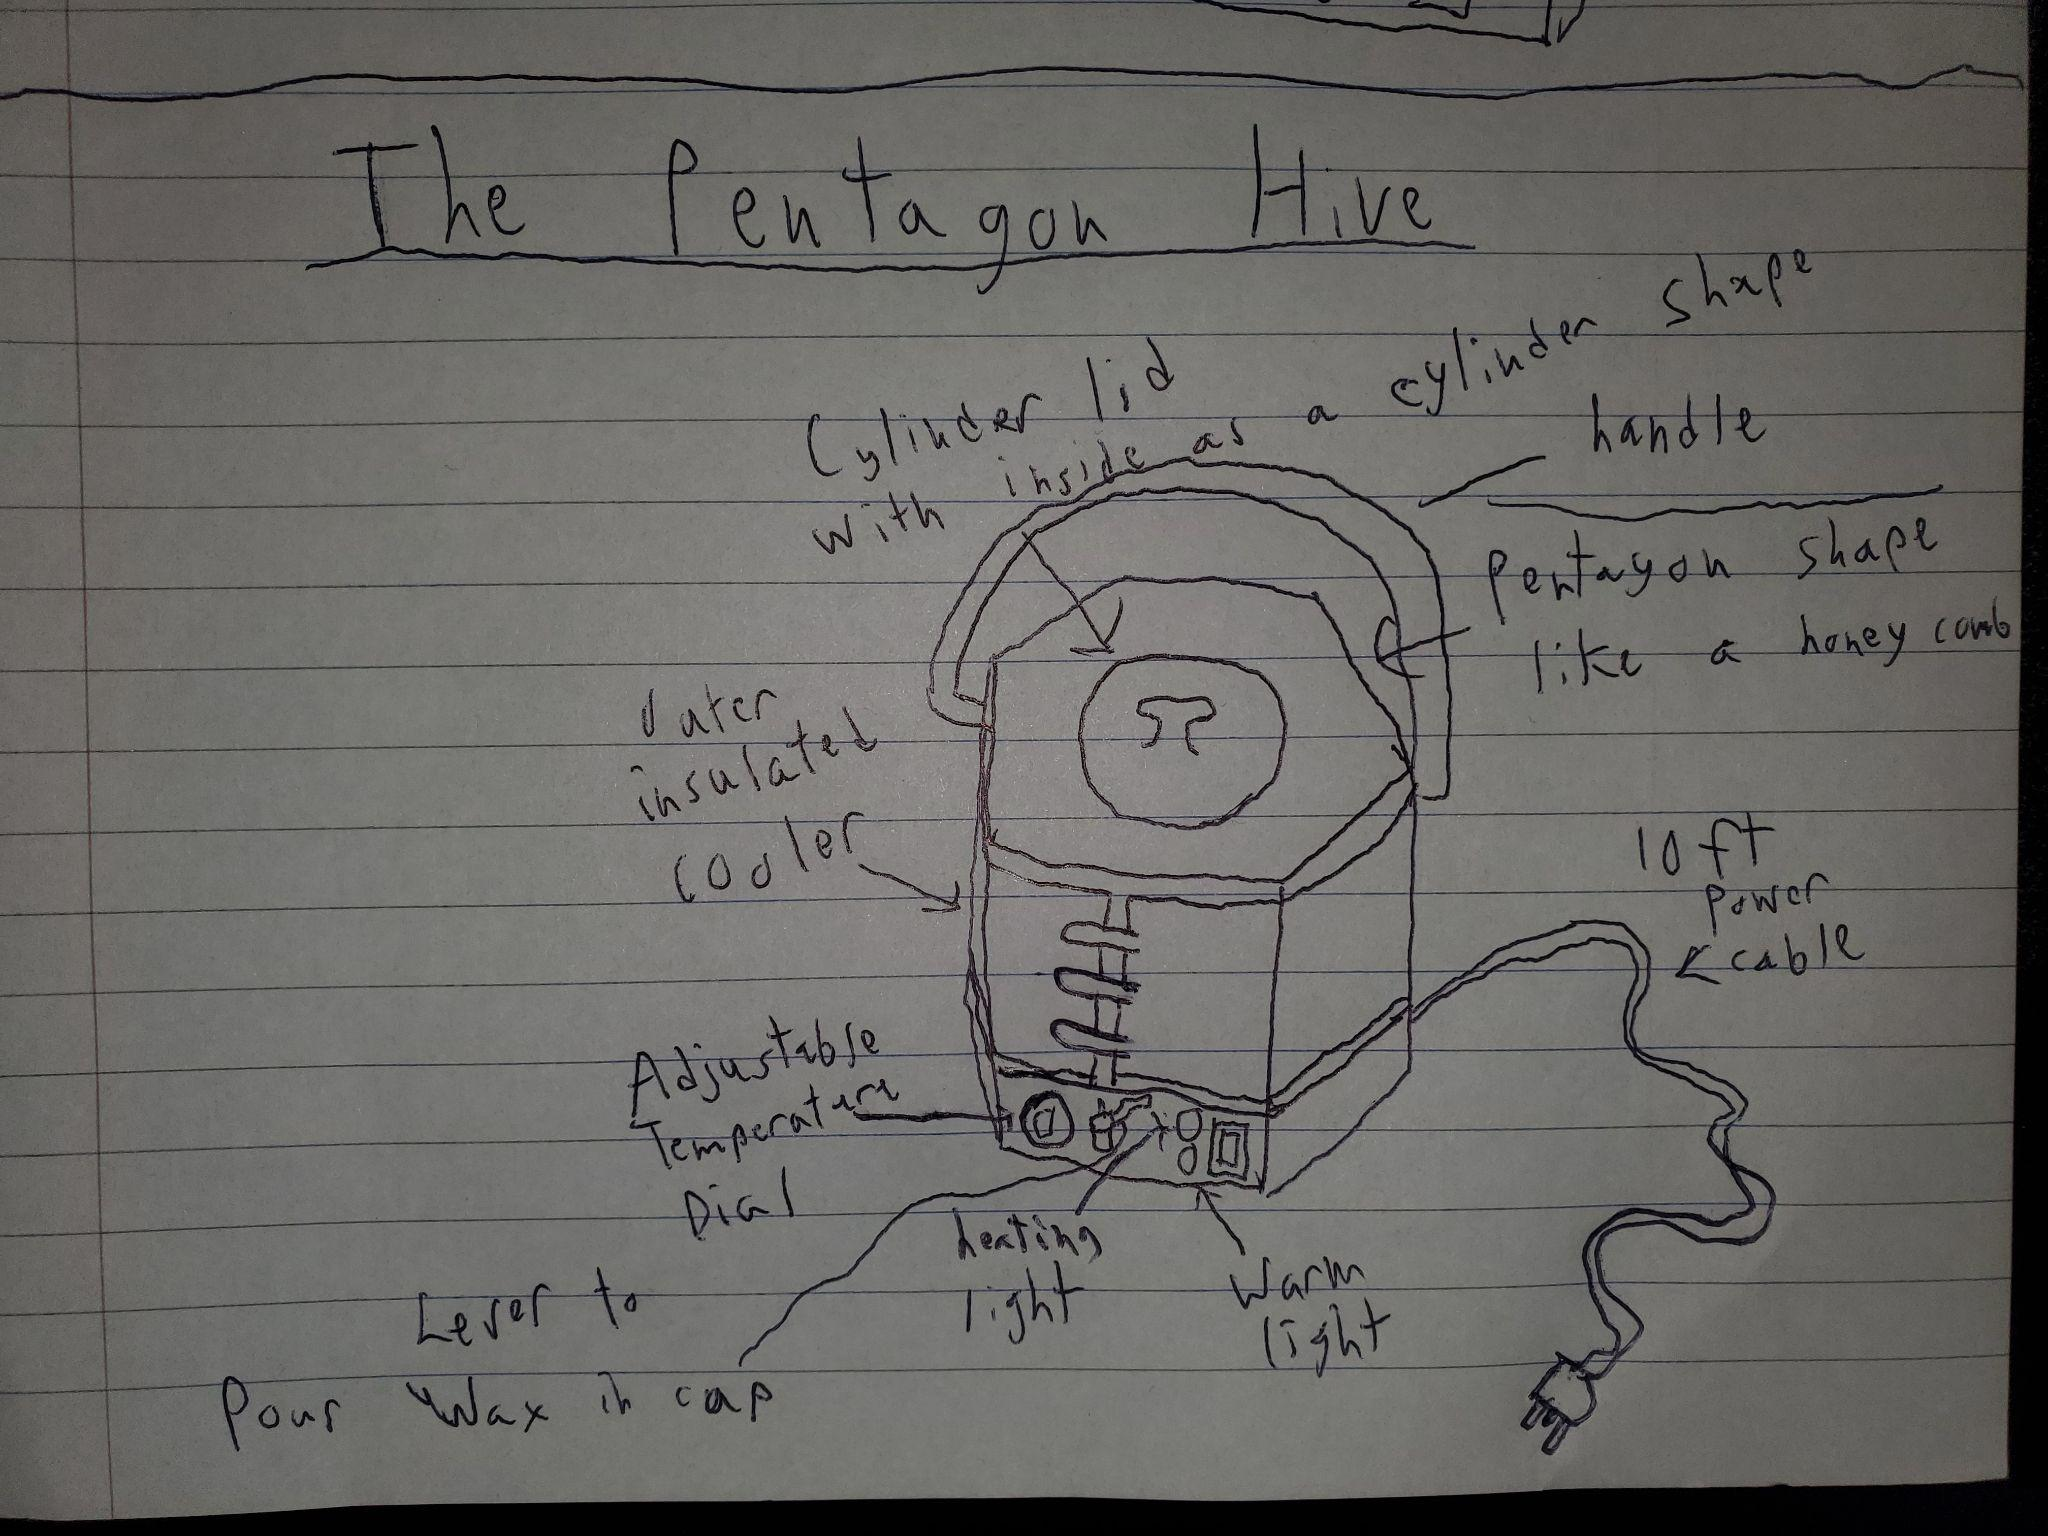 The Pentagon Hive
Cylinder lid
with inside as a cylinder shape
handle
Pentagon shape
like a honey comb
Outer
insulated
cooler
10 ft
power
cable
Adjustable
Temperature
Dial
heating
light
Warm
light
Lever to
Pour Wax in cap